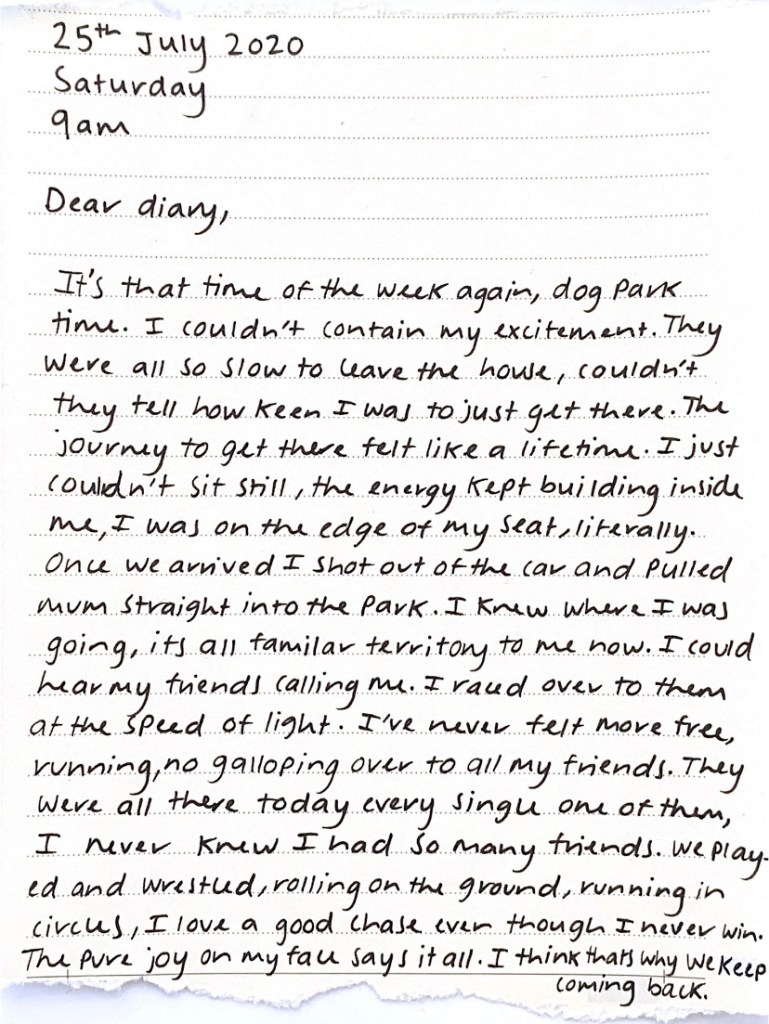 25th July 2020
Saturday
9am
Dear diary,
It's that time of the week again, dog park
time. I couldn't contain my excitement. They
were all so slow to leave the house, couldn't
they tell how keen I was to just get there. The
journey to get there felt like a lifetime. I just
couldn't sit still, the energy kept building inside
me, I was on the edge of my seat, literally.
Once we arrived I shot out of the car and pulled
mum straight into the park. I knew where I was
going, its all familar territory to me now. I could
hear my friends calling me. I raced over to them
at the speed of light. I've never felt more free,
running, no galloping over to all my friends. They
were all there today every single one of them,
I never knew I had so many friends. We play-
ed and wrestled, rolling on the ground, running in
circles, I love a good chase even though I never win.
The pure joy on my face says it all. I think thats why we keep
coming back.